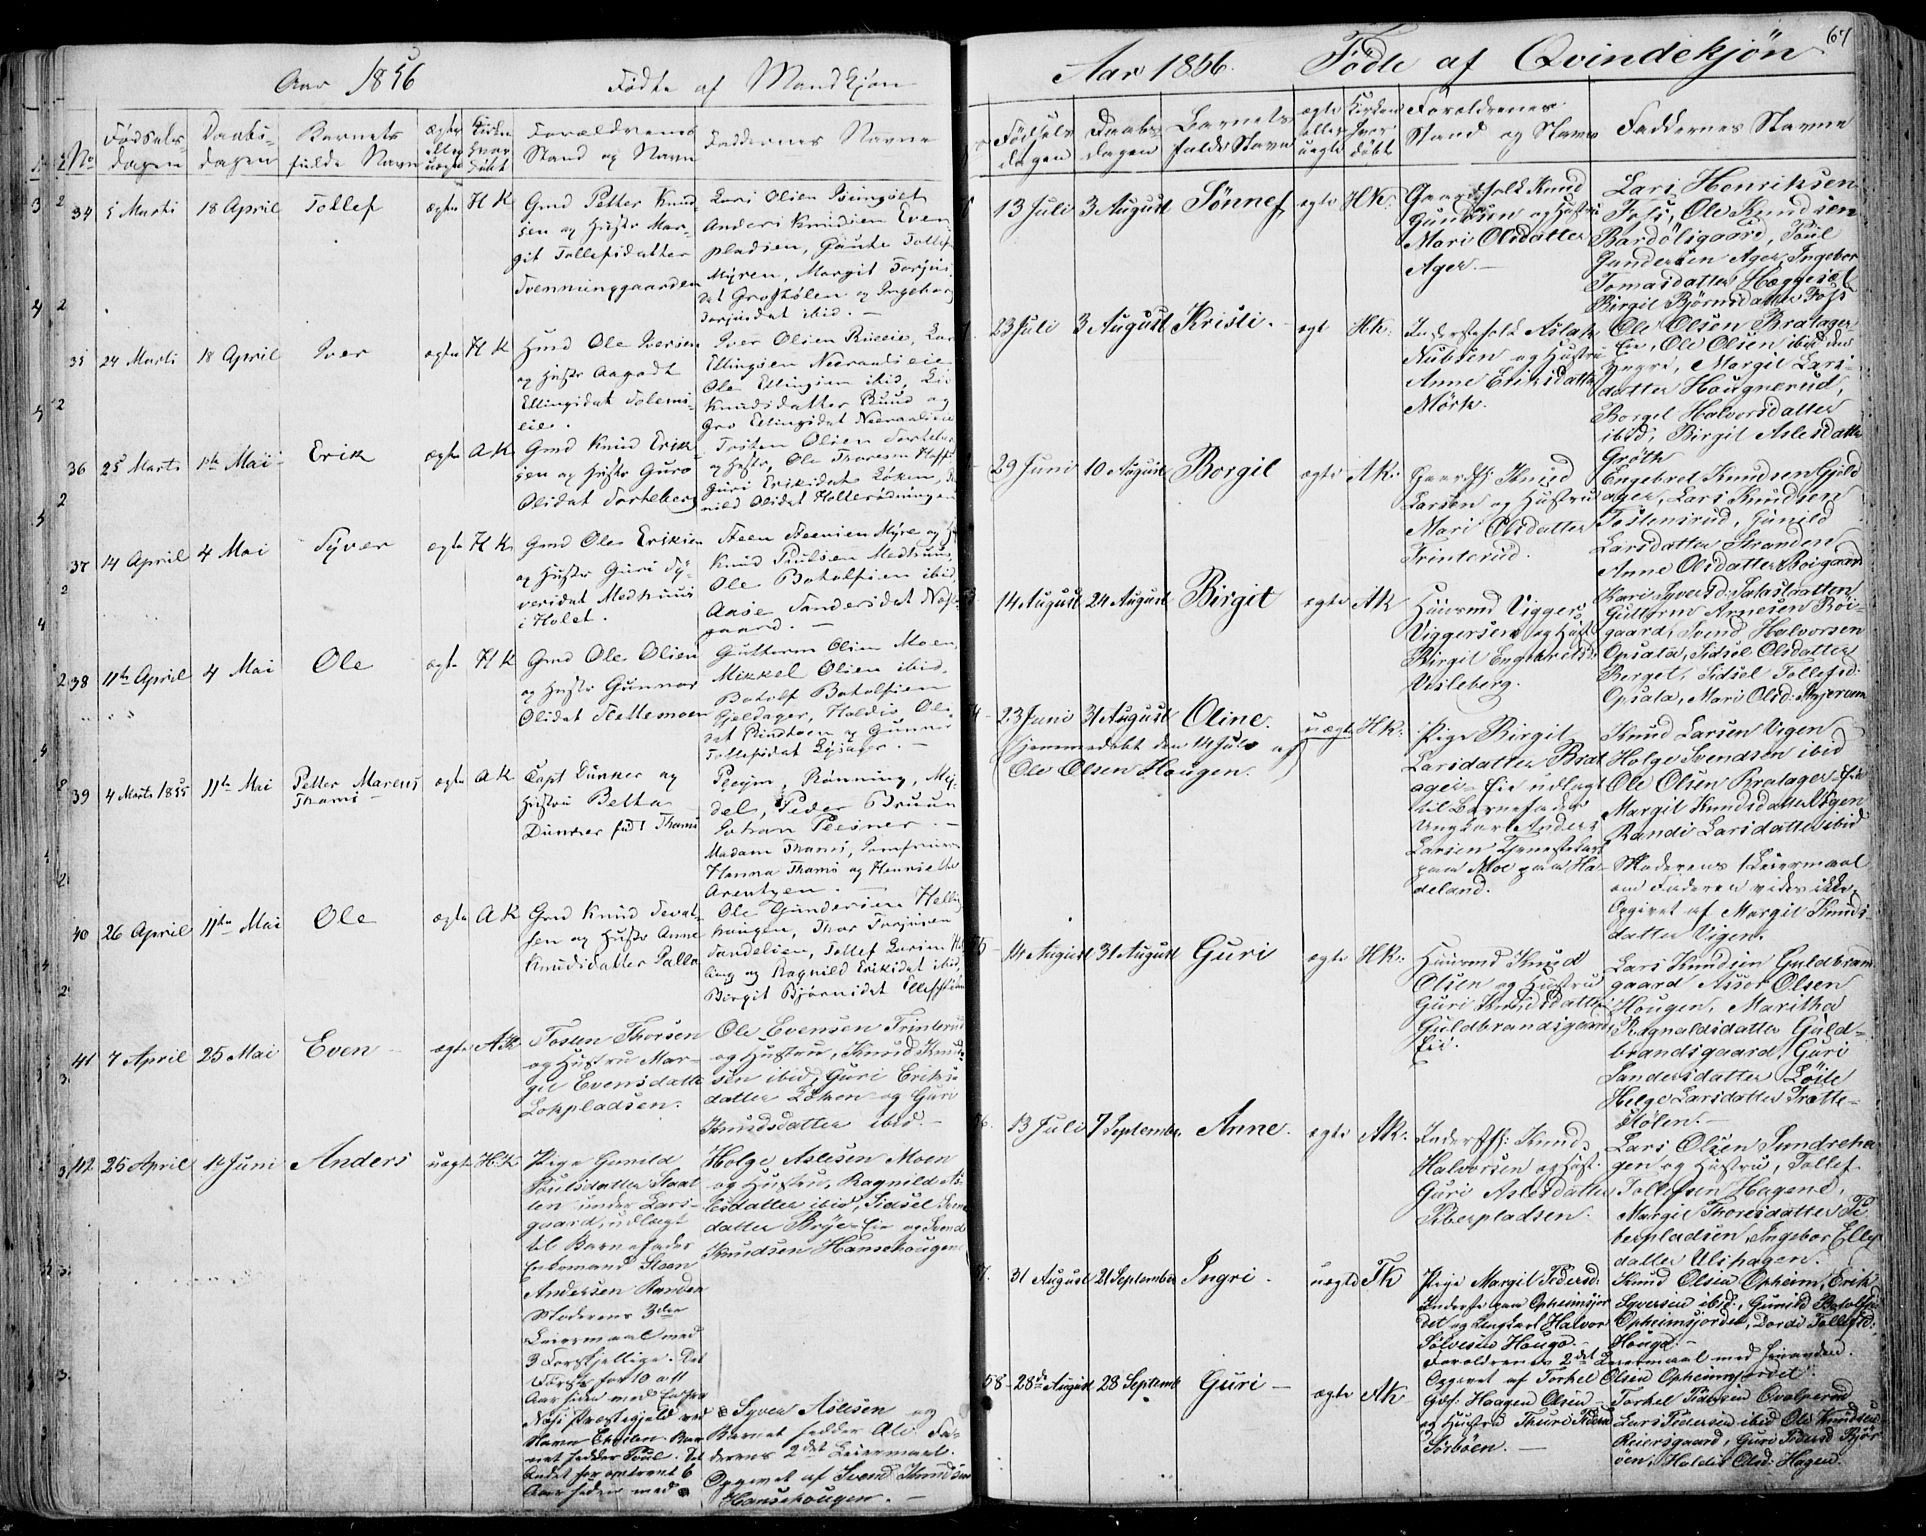 Aar 1856
Födte af Mandkjøn
No
Fødsels-
dagen
Daabs-
dagen
Barnets
fulde Navn
ægte
eller
uægte
Kirken
hvor
døbt
Forældrenes
Stand og Navn
Faddernes Navne
34
5 Marts
18 April
Tollef
ægte
H K
Gmd Petter Knud-
sen og Hustr Mar-
git Tollefsdatter
Svenninggaarden
Anders Knudsen Even
pladsen, Gaute Tollefs
Myren, Margit Torjus
35
24 Marts
18 April
Iver
ægte
H K
Hmd Ole Iversen
og Hustr Aagodt
Ellingsdat
eie.
Ole Ellingsen ibid,
Knudsdatter Ruud og
Gro Ellingsdat
36
25 Marts
1ste Mai
Erik
ægte
A K
Gmd Knud Erik-
sen og Hustr Guro
Olsdat Torteberg
Guri Eriksdat Løken,
37
14 April
4 Mai
Syver
ægte
H K
Gmd Ole Eriksen
og Hustr Guri Sy-
versdat Medhuus
i Holet.
Steen Steensen Myre og
Knud Poulsen Medhuus,
Ole Botolfsen ibid,
Aase Sandersdat Næs-
gaard. —
38
11te April
4 Mai
Ole
ægte
H K
Gmd Ole Olsen
og Hustr Gunnor
Olsdat Slettemoen
Guttorm Olsen Moen,
Mikkel Olsen ibid.
Botolf Botolfsen
Gjeldager, Haldis Ols
39
4 Marts 1855
11te Mai
Petter Marcus
Thams —
ægte
A K
Capt Dunker og
Hustru Betta
Dunker född Thams
del, Peder Bruun
Johan
Madam Thams, Jomfruerne
Hanna Thams og Henriette
Arentzen. —
40
26 April
11te Mai
Ole
ægte
A K
Gmd Knud
sen og Hustr Anne
Knudsdatter Palla
Ole Gundersen Helling
haugen, Thor Torjusen
Sandelien, Tollef Larsen
ling og Ragnild Eriksdat ibid,
Birgit Bjørnsdat
41
7 April
25 Mai
Even —
ægte
A K
Tosten Thorsen
og Hustru Mar-
git Evensdatt
Lokpladsen.
Ole Evensen Trinterud
og Hustru, Knud Knud-
sen ibid, Guri Eriks-
datter Löken og Guri
Knudsdatter ibid. —
42
25 April
1ste Juni
Anders
uægte
H K
Pige Gunild
Poulsdatter Slaat-
ten under Lars-
gaard, udlagt
til Barnefader
Enkemand Steen
Andersen Sanden
Moderens 3die
Leiermaal med
3 Forskjellige. Det
Første for 10 a 11
Aar siden med
Næs Præstegjeld ved
Navn
net hedder Poul. Det
Andet for omtrent 6
Aar siden med
Holge Aslesen Moen
og Hustru, Ragnild As-
lesdatter ibid, Sidsel Svens
datter Brye-Eie og Svend
Knudsen Hansehougen
Syver Aslesen og
Barnet hedder Ale. Fa-
derens 2det Leiermaal.
Opgivet af Svend Knudsen
Hansehougen. —
67
Aar 1856.
Födte af Qvindekjön
Födsels
dagen
Daabs
dagen
Barnets
fulde Navn
ægte
eller
uægte
Kirken
hvor
døbt
Foreldrenes
Stand og Navn
Faddernes Navne
13 Juli
3 August
Sönnef
egte
H K.
Gaardfolk Knud
Gundersen og Hustru
Mari Olsdatter
Ager. —
Lars Henriksen
Foss, Ole Knudsen
Bardölsgaard, Poul
Gundersen Ager, Ingebor
Tomasdatter Heggeset
Birgit Björnsdatter Foss
23 Juli
3 August
Kristi. —
egt
H K.
Inderstfolk Aslak
Nubsen og Hustru
Anne Eriksdatter
Mörk.
Ole Olsen Bratager-
Eie, Ole Olsen ibid
Margit Lars-
datter Hougnerud,
Borgel Halvorsdatter
ibid, Birgit Aslesdatter
Gröth
29 Juni
10 August
Borgil
egte
A K.
Gaardff: Knud
Larsen og Hustru
Mari Olsdatter
Trinterud.
Engebret Knudsen Gjeld
ager, Lars Knudsen
Tostensrud, Gunild
Larsdatter Stranden
Anne Olsdatter Roigaard
14 August
24 August
Birgit
egte
A K
Huusmd Vigger
Viggersen og Hust
Birgit Engebretsd:
Vesleberg.
Guttorm Arnesen Roi-
gaard, Svend Halvorsen
Opsata, Sidsel Olsdatter
Berget, Sidsel Tollefsd:
Opsata, Mari Olsd:
23 Juni
31 August
Oline.
uægt
H K.
(Hjemmedøbt den 14 Juli af
Ole Olsen Hougen.)
Pige Birgit
Larsdatter Brat
ager-Eie udlagt
til Barnefader
Ungkarl Anders
Larsen Tjenestekarl
paa Moe paa Ha-
deland.
Knud Larsen Vigen
Holge Svendsen ibid
Ole Olsen Bratager-Eie
Margit Knudsdatter Vigen
Randi Larsdatter ibid
Moderens 1 Leiermaal
om Faderen vides ikke.
Opgivet af Margit Knuds
datter Vigen.
14 August
31 August
Guri
egte
H K.
Huusmd Knud
Olsen og Hustru
Guri Knudsdatter
Guldbrandsgaard
Eie.
Lars Knudsen Guldbrans
gaard Assor Olsen
Hougen, Maritha
Ragnaldsdatter Guld-
brandsgaard, Guri
Sandersdatter
Helge Larsdatter Trætte-
stølen. —
13 Juli
7 September.
Anne.
egte
A K.
Inderstff: Knud
Halvorsen og Hust.
Guri Aslesdatter
Tiberpladsen.
Lars Olsen Sundreha
gen og Hustru, Tollef
Tollefsen Hagene,
Margit Thoresdatter Ti
berpladsen, Ingebor Ellefs
datter Ulshagen.
31 August
21 September
Ingri.
uægte
T K
Pige Margit Pedersd:
Inderst paa Opheimsjor
det og Ungkarl Halvor
Sölvesen Hougd. —
Foreldrenes 2det Leiermaal med hinanden.
Opgivet af Torkel Olsen Opheimsjordet.
Knud Olsen Opheim, Erik
Syversen ibid., Gunild Botolfsd
Opheimsjordet, Dordi Tollefsd:
Hougd. —
58
28de August
28 Septemb
Guri —
ægte
A K
Gdf: Haagen Olsen
og Hustru Thuri Pedersd
Sörböen. —
Torkel Pedersen
Lars Pedersen ibid Ole Knudsen
Reiersgaard, Guri Pedersd Björ
öen, Haldis Olsd: Hagen.